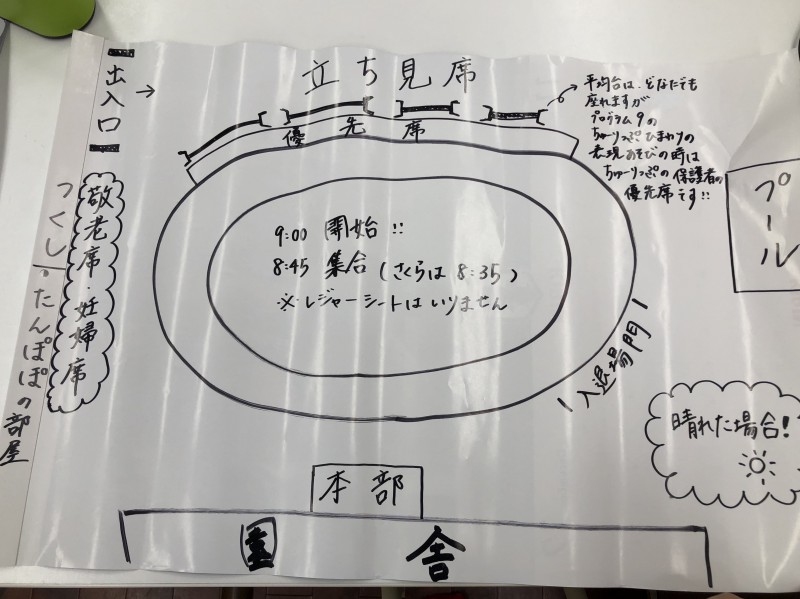 出入口
→
立ち見席
優先席
平均台は、どなたでも
座れますが
プログラム9の
ちゅーりっぷひまわりの
表現あそびの時は
ちゅーりっぷの保護者の
優先席です!!
プール
つくし・たんぽぽの部屋
敬老席・妊婦席
9:00 開始!!
8:45 集合(さくらは 8:35)
※レジャーシートはいりません
入退場門
晴れた場合!
本部
園舎